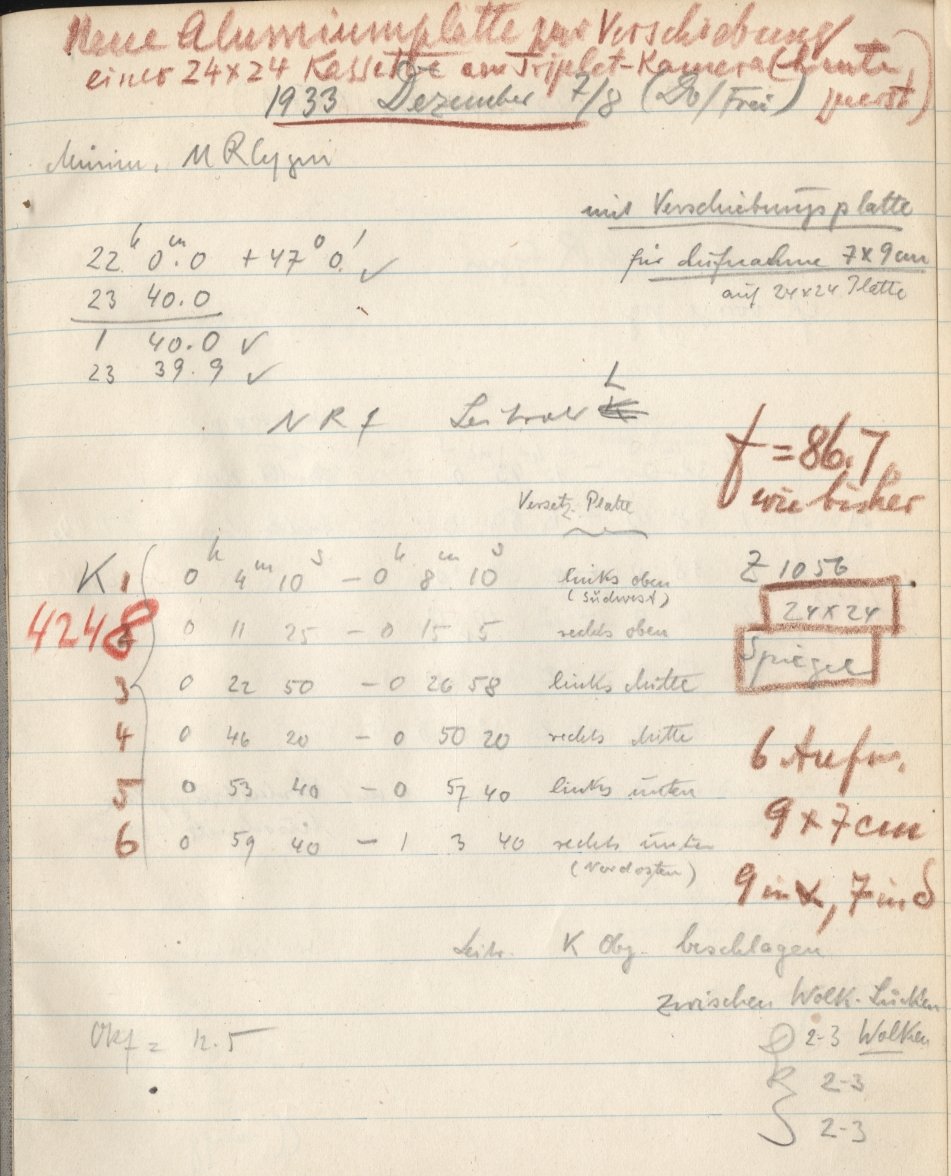 Neue Aluminiumplatte zur Verschiebung
einer 24x24 Kassette am Triplet-Kamera (heute
zuerst)
1933 Dezember 7/8 (Do/Frei)
M R Cygni
mit Verschiebungsplatte
für Aufnahme 7x9cm
auf 24x24 Platte
22h 0m.0 +47° 0' ✓
23 40.0
1 40.0 ✓
23 39.9 ✓
NRf L
f = 86.7
wie bisher
Versetz. Platte
K 1 0h 4m 10s – 0h 8m 10s links oben
(Südwest)
Z 1056
24x24
4248
0 11 25 – 0 15 5 rechts oben
Spiegel
3 0 22 50 – 0 26 58 links Mitte
4 0 46 20 – 0 50 20 rechts Mitte
5 0 53 40 – 0 57 40 links unten
6 0 59 40 – 1 3 40 rechts unten
(Nordosten)
6 Aufn.
9x7cm
9 in α, 7 in δ
Leitr. K Obj. beschlagen
zwischen Wolk. Lücken
Okf = 12.5
2-3 Wolken
2-3
2-3